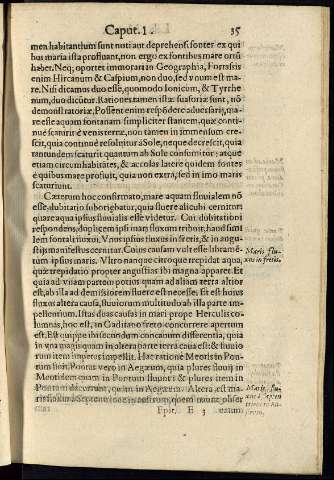 Caput. 1. 35
men habitantium sunt noti aut deprehensi fontes ex qui
bus maria ista profluant, non ergo ex fontibus mare ortũ
habet. Neq; oportet immorari in Geographia, Forrassis
enim Hircanum & Caspium, non duo, sed vnum est ma-
re. Nisi dicamus duo esse, quomodo Ionicum, & Tyrrhe
num, duo dicũtur. Rationes tamen istæ suasoriæ sunt, nõ
demonstratoriæ, Possent enim respõdere aduersarij, ma-
re esse aquam fontanam simpliciter stantem, quæ conti-
nuè scaturit è venis terræ, non tamen in immensum cre-
scit, quia continuè resoluitur à Sole, neque decrescit, quia
tantundem scaturit quantum ab Sole consumitur: atque
etiam circumhabitãtes, & accolas latere quidem fontes
è quibus mare profluit, quia non extrà, sed in imo maris
scaturiunt.
Cæterum hoc confirmato, mare aquam fluuialem nõ
esse, dubitatio suborihatur, quia fluere alicubi cernitur:
quare aqua ipsius fluuialis esse videtur. Cui dubitationi
respondens, Duplicem ipsi mari fluxum tribuit, haud simi
lem fontali fluxui. Vnus ipsius in fretis, & in angu-
stijs manifestus cernitur. Cuius causam vult esse libramẽ-
tum ipsius maris. Vltro nanque citroque trepidat aqua,
quæ trepidatio propter angustias ibi magna apparet. Et
quia ad vnam partem potius quam ad aliam terra altior
est, ab illa ad demissiorem fluere est necesse. sit est huius
fluxus altera causa, fluuiorum multitudo ab illa parte im-
pellemium. Istas duas causas in mari prope Herculis co-
lumnas, hoc est, in Gaditano freto concurrere apertum
est. Est quippe ibi secundum concauum differentia, quia
in vna magis quam in altera parte terra caua est: & fluuio
rum item imperus impellit. Hac ratione Meotis in Pon-
tum fluit, Pontus vero in Ægæum, quia plures fluuij in
Meotidem quam in Pontum fluunt: & plures item in
Pontum decurrunt, quàm in Ægæum. Altera est ma-
ris fluxus à Septentrione in austrum, quem multi
Maris flu-
xus in fretis.
Maris flu-
Epir. E 3 uatum